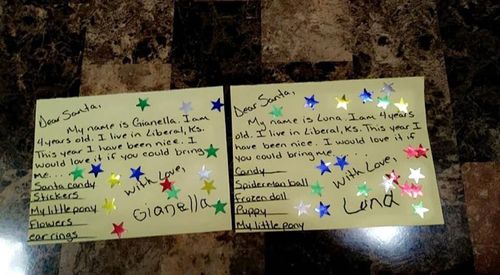 Dear Santa,
My name is Gianella. I am
4 years old. I live in Liberal, Ks.
This year I have been nice. I
would love it if you could bring
me....
Santa candy
Stickers
My little pony
Flowers
earrings
With Love,
Gianella
Dear Santa,
My name is Luna. I am 4
years old. I live in Liberal, Ks. This year I
have been nice. I would love it if
you could bring me....
Candy
Spiderman ball
frozen doll
Puppy
My little pony
With Love,
Luna